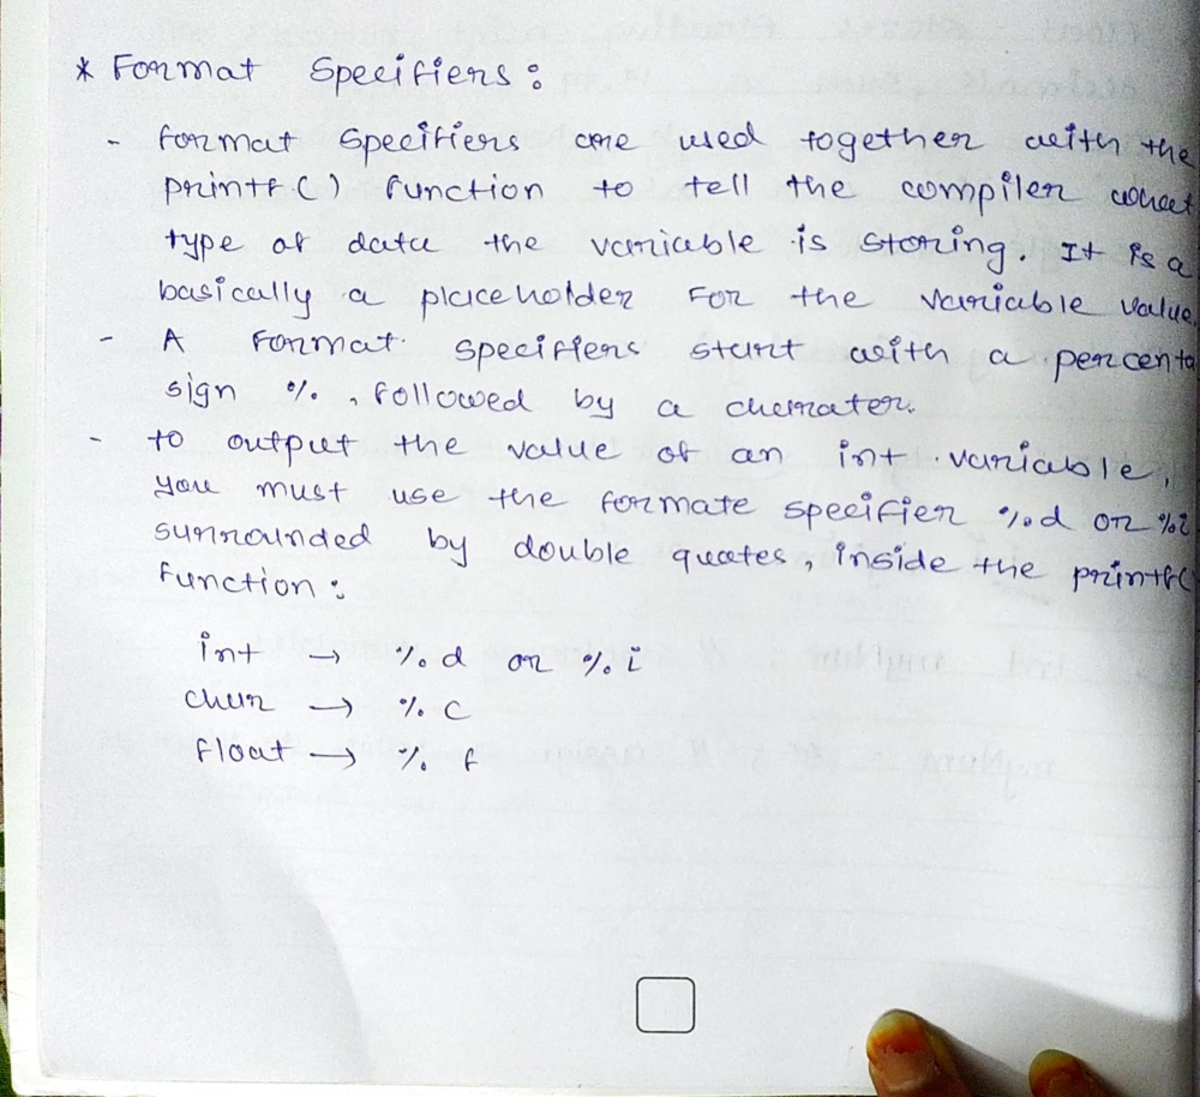 * Format Specifiers:
- Format Specifiers are used together with the
printf() function to tell the compiler what
type of data the variable is storing. It is a
basically a placeholder For the variable value.
- A Format specifiers start with a percenta
sign %, followed by a charater.
- to output the value of an int variable,
you must use the formate specifier %d or %i
surrounded by double quates, inside the printf(
function:
int → %d or %i
char → %c
float → %f